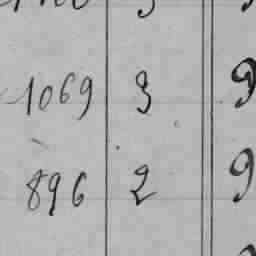 1069 3 9
896 2 9